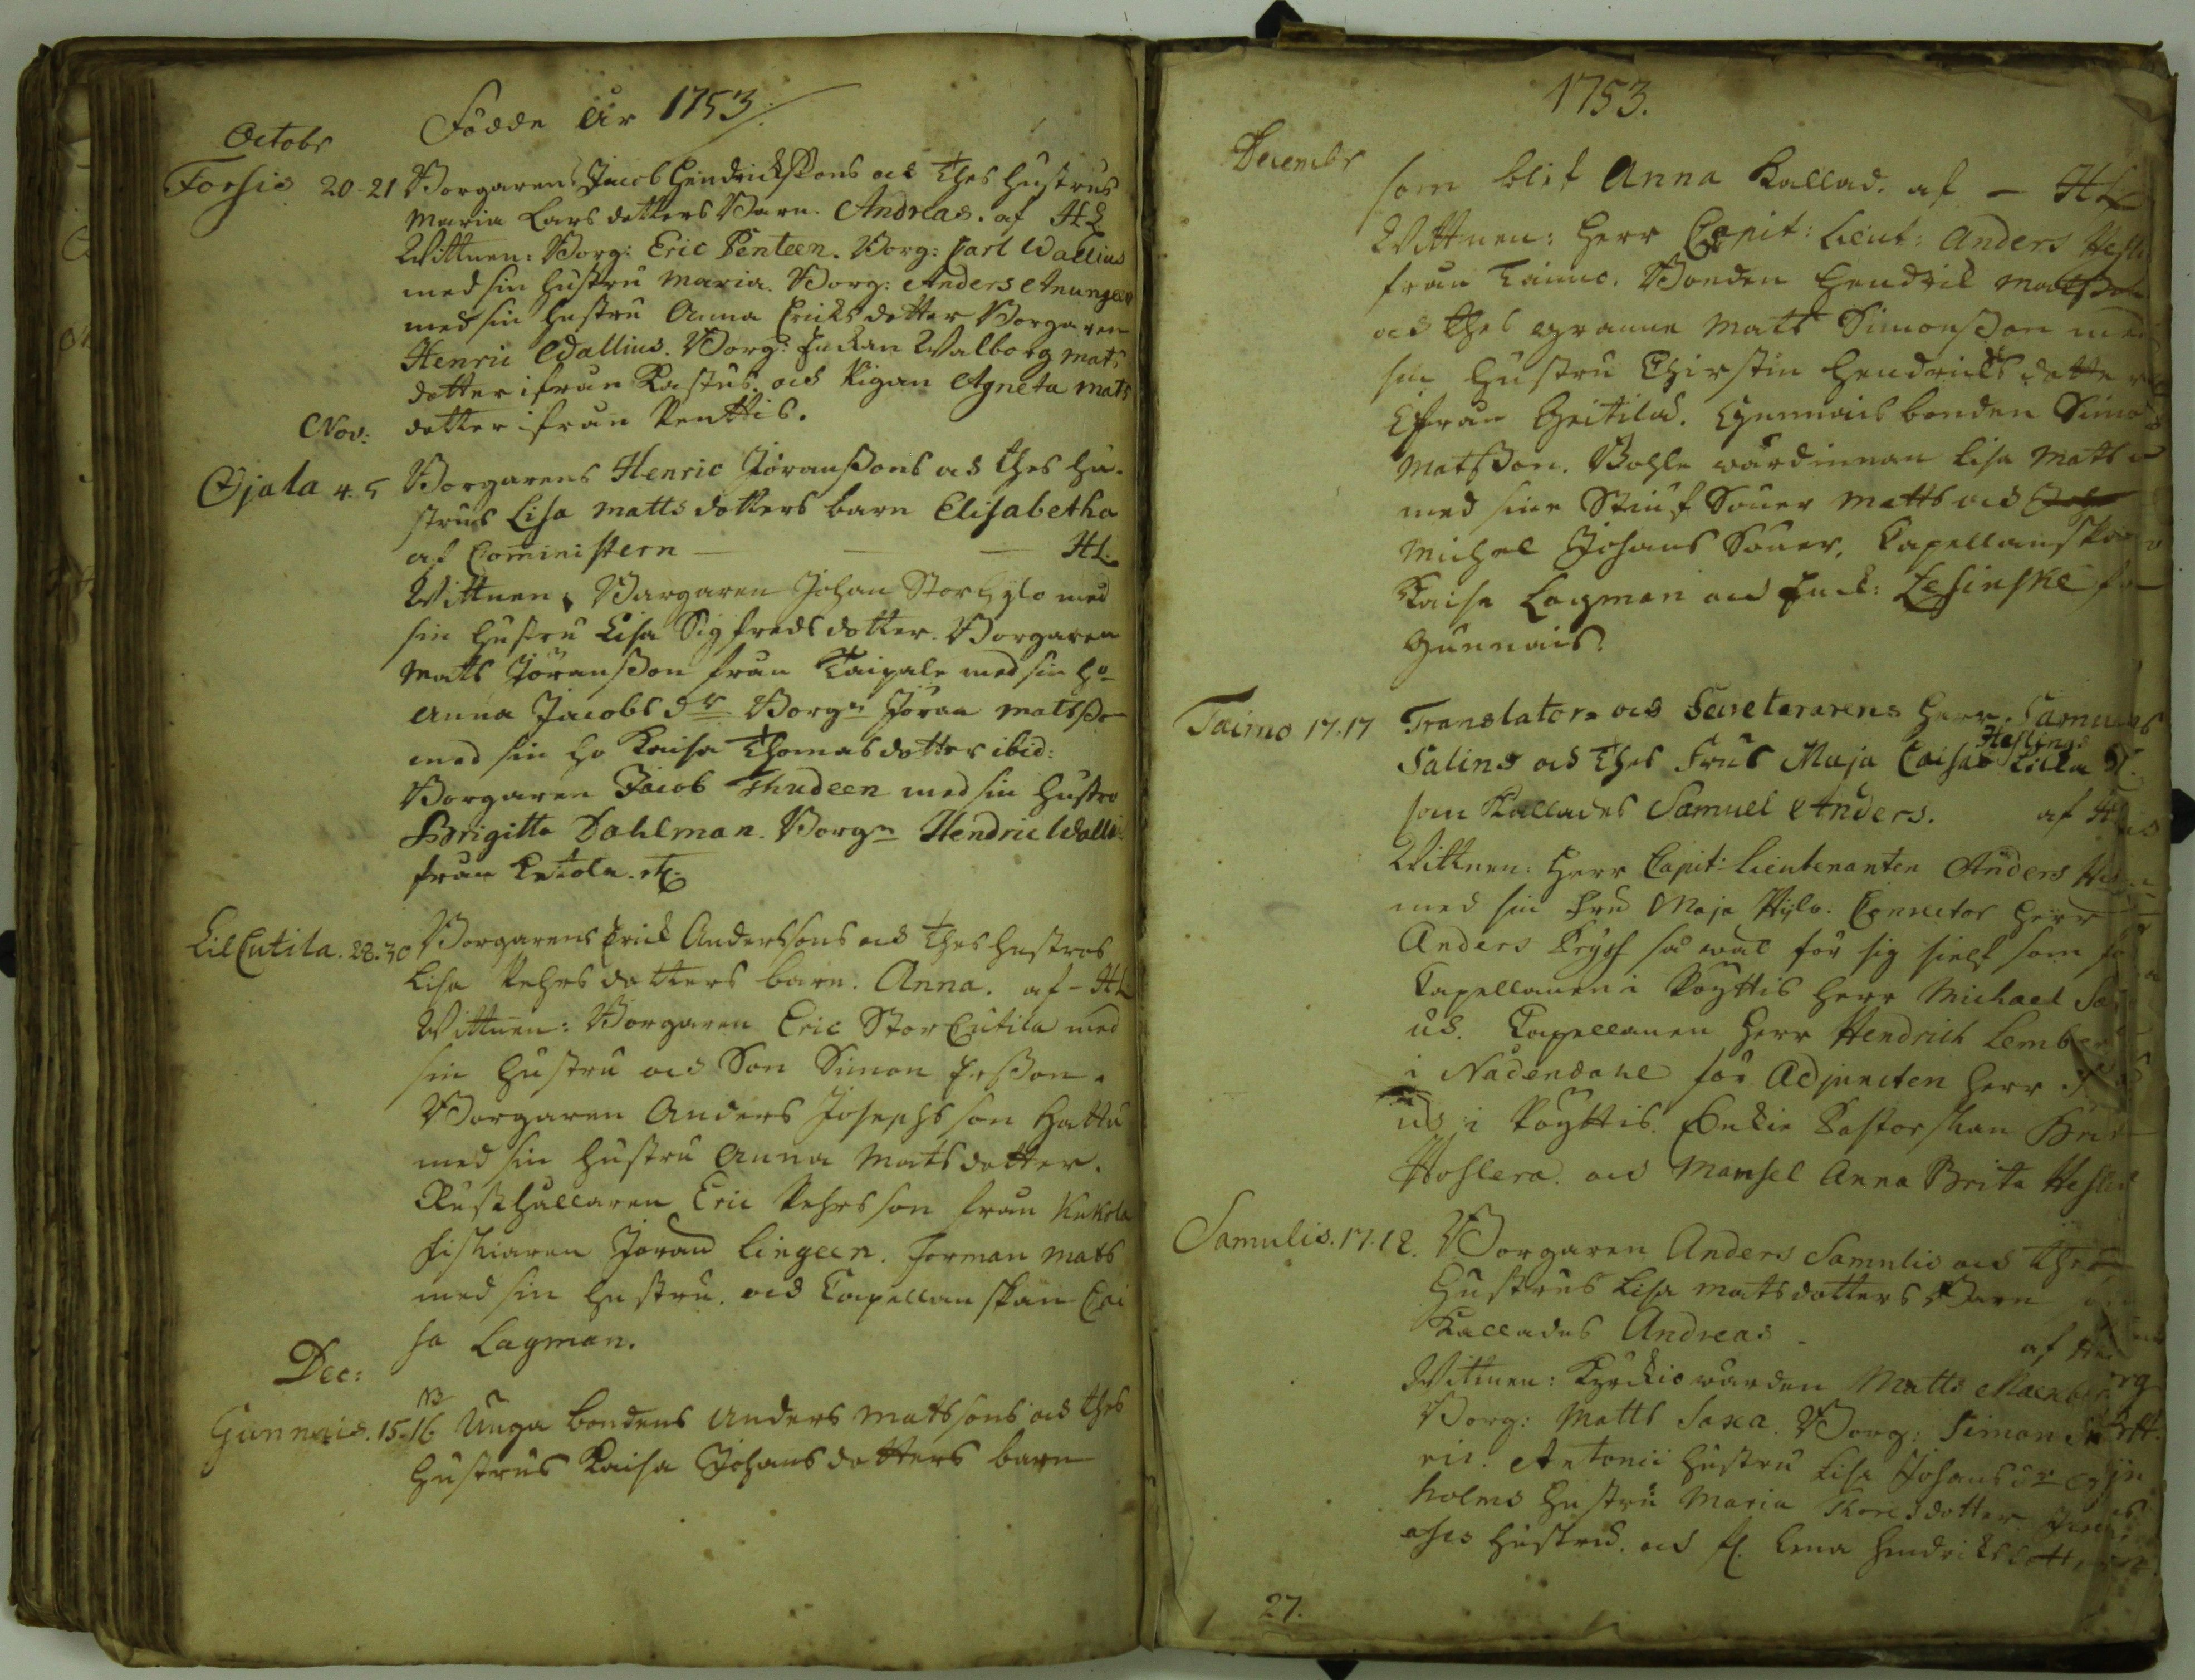 Födde År 1753
Octobr
Forsis 20-21 Borgarens Jacob Hendrichssons och thes hustrus
Maria Larsdotters Barn. Andreas. af HL
Wittnen: Borg: Eric Penteen. Borg: Carl Wallius
med sin hustru Maria. Borg: Anders
med sin hustru Anna Ericksdotter Borgaren
Henric Wallius. Borg: Enckan Walborg Mats
dotter ifrån Kastus. och Pigan Agneta Mats
Nov: dotter ifrån Penttis.
Ojala 4.5 Borgarens Henric Jöranssons och thes hu-
strus Lisa Mattsdotters barn Elisabetha
af Comministern — — HL.
Wittnen, Borgaren Johan Storhylo med
sin hustru Lisa Sigfredsdotter. Borgaren
Matts Jöransson från Taipale med sin ho
Anna Jacobs dr Borgn Jöran Matsson
med sin ho Kaisa Thomasdotter ibid:
Borgaren Jacob Thudeen med sin hustru
Brigitta Dahlman. Borgn Hendric Walli
från Ketola. etc.
Lil Eutila. 28.30 Borgarens Erick Anderssons och thes hustrus
Lisa Pehrsdotters barn. Anna. af - HL
Wittnen: Borgaren Eric StorEutila med
sin hustru och Son Simon Ersson.
Borgaren Anders Josephsson Hattu
med sin hustru Anna Matsdotter.
Rusthållaren Eric Pehrsson från Kukola
fiskiaren Jöran Lingeen. Forman Mats
med sin hustru. och Capellanskan Cai
sa Lagman.
Dec:
NB
Gunnais. 15-16 Unga bondens Anders Matssons och thes
hustrus Kaisa Johansdotters barn
1753.
Decembr
som blef Anna Kallad. af — HL
Wittnen: Herr Capit: Lieut: Anders
från Taimo. Bonden Hendrik Matsson
och thes granne Matts Simonsson med
sin hustru Chirstin Hendrichsdotter
ifrån Gritilä. Gunnais bonden Simo
Matsson. Bohle wärdinnan Lisa Matts
med sine Stiuf Söner Matts och
Michel Johans Söner. Capellanskan
Kaisa Lagman och Enck: Lesinske
Gunnais.
Taimo 17.17 Translators och Secreterarens Herr. Samuels
Heslings
Salins och thes Frus Maja Caisas Lilla
som Kallades Samuel Anders. af H
Wittnen: Herr Capit-Lieutenanten Anders
med sin Fru Maja Hylo. Conrector Herr
Anders Pryss så wäl för sig sielf som för
Capellanen i Pöyttis Herr Michael
us. Capellanen Herr Hendrich Lemberg
i Nådendahl för Adjuncten Herr
us i Pöyttis. Enckie Pastorskan
Hoslera. och Mamsel Anna Brita
Samulis. 17.18. Borgaren Anders Samulis och thes
hustrus Lisa Matsdotters Barn
Kallades Andreas - af
Wittnen: Kyrckiowärden Matts
Borg: Matts Saxa. Borg: Simon
ric. Antonii hustru Lisa Johans dr
holms hustru Maria Thoresdotter.
hustru. och fl. Lena Hendricksdotter
27.